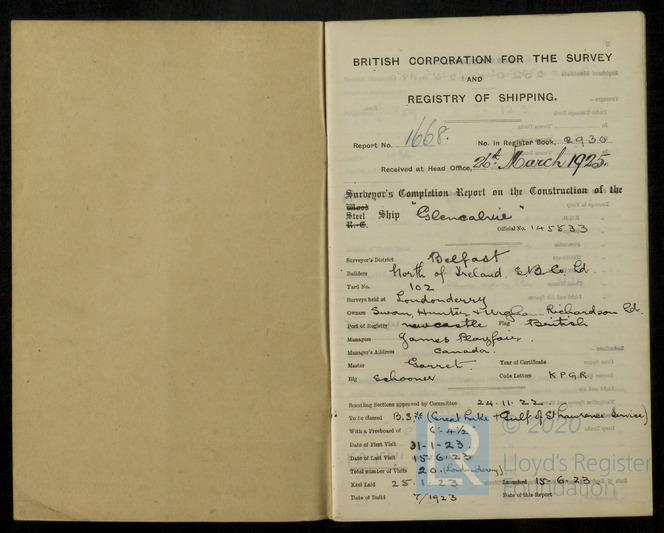 BRITISH CORPORATION FOR THE SURVEY
AND
REGISTRY OF SHIPPING.
Report No. 1668. No. in Register Book, 2930
Received at Head Office, 26th March 1925.
Surveyor's Completion Report on the Construction of the
Wood
Steel Ship "Glencalvie"
R.-C.
Official No. 145533
Surveyor's District Belfast
Builders North of Ireland S.B. Co. Ld.
Yard No. 102
Surveys held at Londonderry
Owners Swan, Hunter & Wigham Richardson Ld.
Port of Registry Newcastle Flag British
Managers James Playfair.
Manager's Address Canada.
Master Garret. Year of Certificate
Rig Schooner Code Letters K P G R
Scantling Sections approved by Committee 24.11.22
To be classed B.S.* (Great Lake & Gulf of St Lawrence Service)
With a Freeboard of 4½
Date of First Visit 31-1-23.
Date of Last Visit 15-6-23
Total number of Visits 20. (Londonderry)
Keel Laid 25.1.23 Launched 15-6-23
Date of Build 7/1923 Date of this Report
© 2020
Lloyd's Register
Foundation